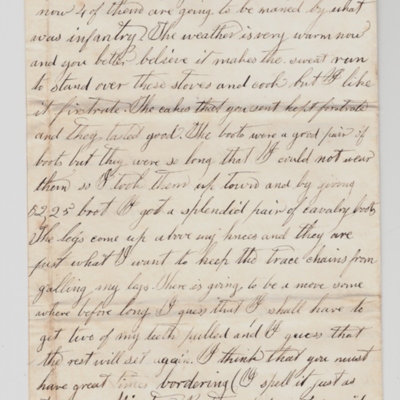 now 4 of them are going to be maned by what
was infantry. The weather is very warm now
and you better beleive it makes the sweat run
to stand over these stoves and cook but I like
it firstrate. The cakes that you sent kept firstrate
and they tasted good. The boots were a good pair of
boots but they were so long that I could not wear
them so I took them up town and by giving
$2,25 boot I got a splendid pair of cavalry boots
The legs come up above my knees and they are
just what I want to keep the trace chains from
galling my legs. There is going to be a move some
where before long. I guess that I shall have to
get two of my teeth pulled and I guess that
the rest will set again. I think that you must
have great times bordering (I spell it just as